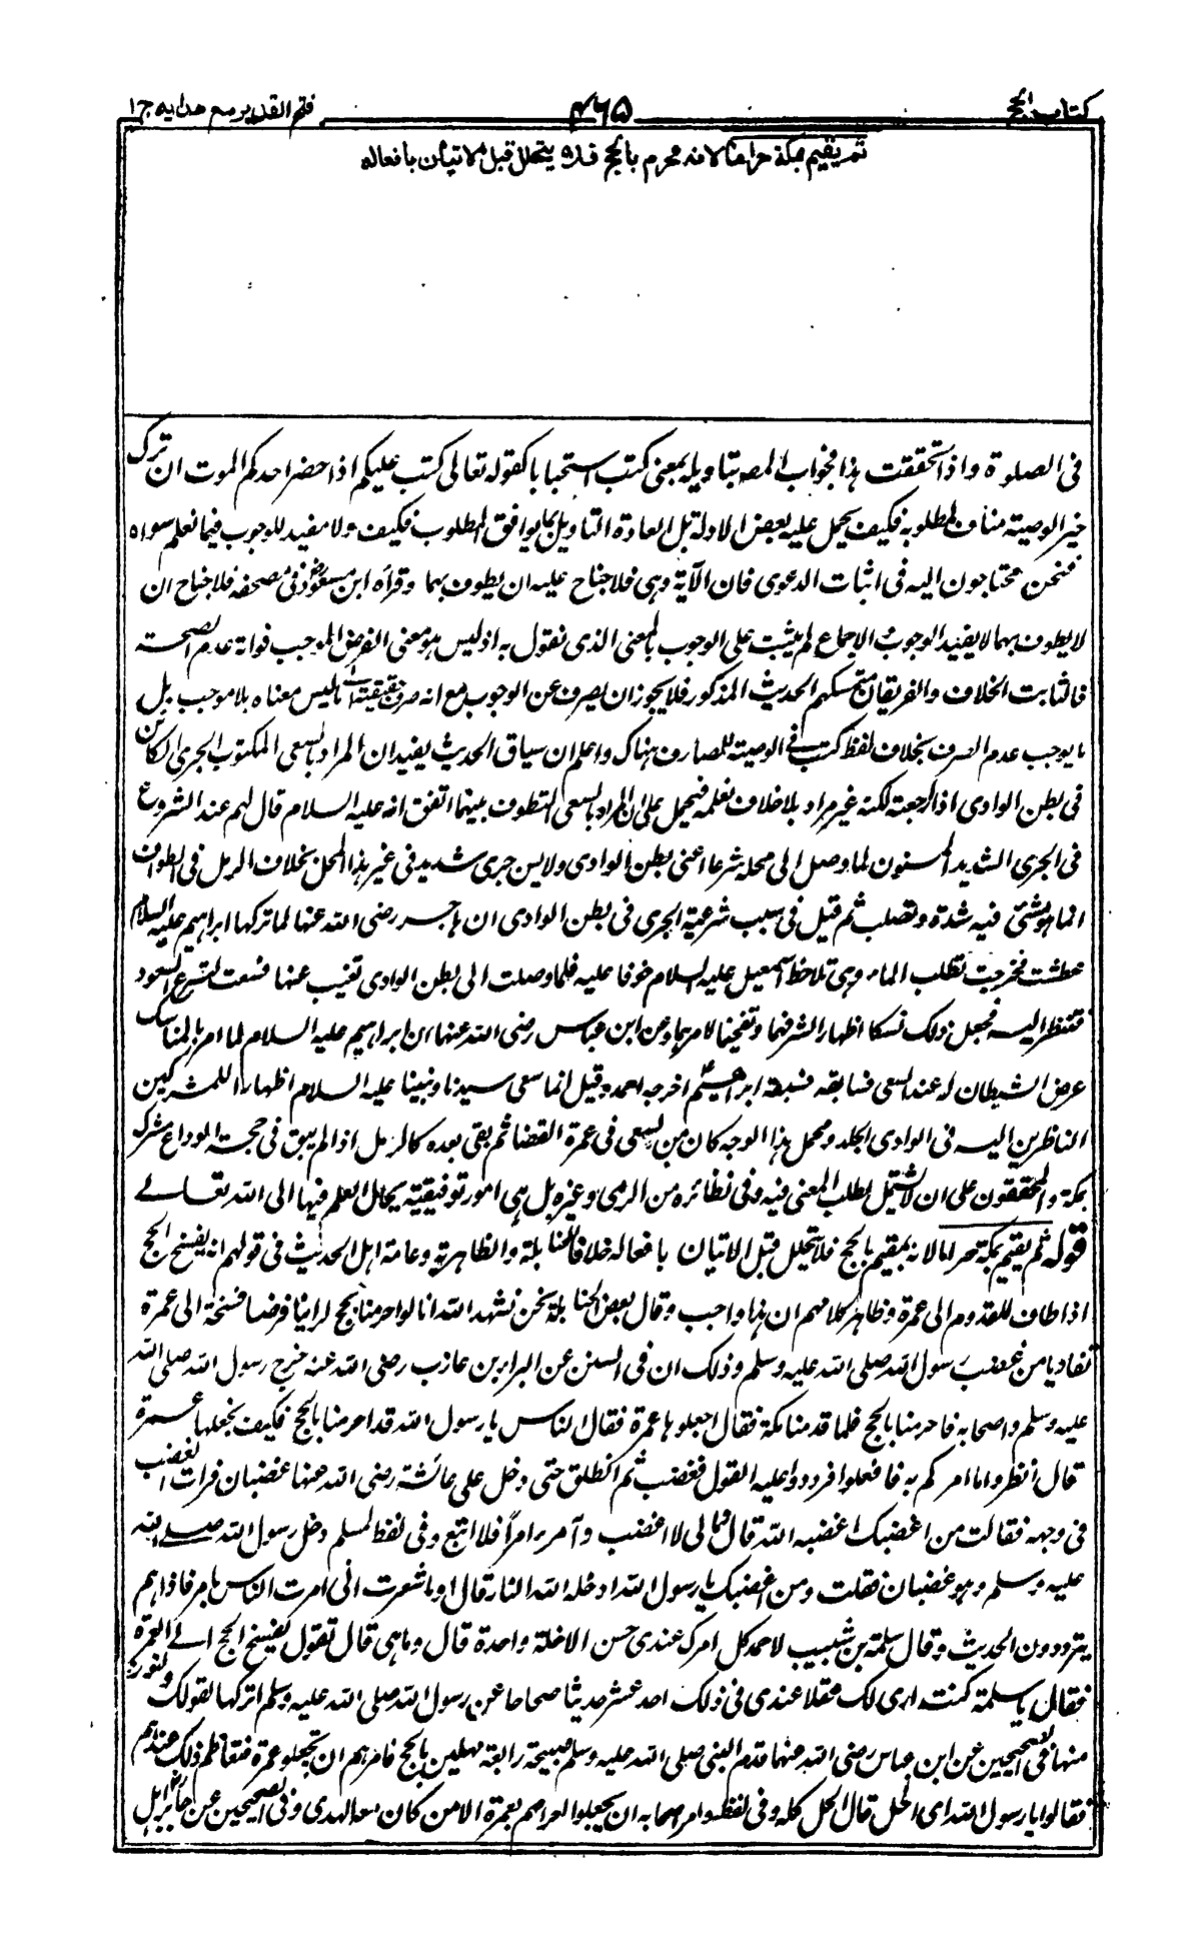 كتاب الحج
٤٦٥
فتح القدير مع هدايه ج ١
ثم يقيم بمكة حراما لانه محرم بالحج فلا يتحلل قبل الاتيان بافعاله
فى الصلوة واذا تحققت هذا فجواب المصـ بتاويله بمعنى كتب استحبابا كقوله تعالى كتب عليكم اذا حضر احدكم الموت ان ترك
خير الوصية مناف لمطلوبه فكيف يحمل عليه بعض الادلة بل العادة التاويل بما يوافق المطلوب فكيف ولا مفيد للوجوب فيما نعلم سواه
فنحن محتاجون اليه فى اثبات الدعوى فان الآية وهى فلا جناح عليه ان يطوف بهما وقرأه ابن مسعود رض فى مصحفه فلا جناح ان
لا يطوف بهما لا يفيد الوجوب والاجماع لم يثبت على الوجوب بالمعنى الذى نقول به اذ ليس هو معنى الفرض الموجب فواته عدم الصحة
فالثابت الخلاف والفريقان متمسكهم الحديث المذكور فلا يجوز ان يصرف عن الوجوب مع انه حقيقته الى ما ليس معناه بلا موجب بل
ما يوجب عدم الصرف بخلاف لفظ كتب فى الوصية للصارف هناك واعلم ان سياق الحديث يفيد ان المراد بالسعى المكتوب الجرى الكائن
فى بطن الوادى اذا راجعته لكنه غير مراد بلا خلاف نعلمه فيحمل على ان المراد بالسعى التطوف بينهما اتفق انه عليه السلام قال لهم عند الشروع
فى الجرى الشديد المسنون لما وصل الى محله شرعا اعنى بطن الوادى ولا يسن جرى شديد فى غير هذا المحل بخلاف الرمل فى الطواف
انما هو مشى فيه شدة وتصلب ثم قيل فى سبب شرعية الجرى فى بطن الوادى ان هاجر رضى الله عنها لما تركها ابراهيم عليه السلام
عطشت فخرجت تطلب الماء وهى تلاحظ اسمعيل عليه السلام خوفا عليه فلما وصلت الى بطن الوادى تغيب عنها فسعت لتسرع الصعود
فتنظر اليه فجعل ذلك نسكا اظهارا لشرفهما وتفخيما لامرهما وعن ابن عباس رضى الله عنهما ان ابراهيم عليه السلام لما امر بالمناسك
عرض الشيطان له عند السعى فسابقه فسبقه ابراهيم اخرجه احمد وقيل انما سعى سيدنا ونبينا عليه السلام اظهارا للمشركين
الناظرين اليه فى الوادى الجلد ومحمل هذا الوجه كان من السعى فى عمرة القضا ثم بقى بعده كالرمل اذ لم يبق فى حجة الوداع مشرك
بمكة والمحققون على ان لا يشتغل بطلب المعنى فيه وفى نظائره من الرمى وغيره بل هى امور توقيفية يحال العلم فيها الى الله تعالى
قوله ثم يقيم بمكة حراما لانه مقيم بالحج فلا يتحلل قبل الاتيان بافعاله خلافا للحنابلة والظاهرية وعامة اهل الحديث فى قولهم انه يفسخ الحج
اذا طاف للقدوم الى عمرة وظاهر كلامهم ان هذا واجب وقال بعض الحنابلة نحن نشهد الله انا لو احرمنا بحج لراينا فرضا فسخه الى عمرة
تفاديا من غضب رسول الله صلى الله عليه وسلم وذلك ان فى السنن عن البراء بن عازب رضى الله عنه خرج رسول الله صلى الله
عليه وسلم واصحابه فاحرمنا بالحج فلما قدمنا مكة فقال اجعلوها عمرة فقال الناس يا رسول الله قد احرمنا بالحج فكيف نجعلها عمرة
قال انظروا ما امركم به فافعلوا فردوا عليه القول فغضب ثم انطلق حتى دخل على عائشة رضى الله عنها غضبان فرات الغضب
فى وجهه فقالت من اغضبك اغضبه الله قال مالى لا اغضب وآمر امراً فلا اتبع وفى لفظ لمسلم دخل رسول الله صلى الله
عليه وسلم وهو غضبان فقلت ومن اغضبك يا رسول الله ادخله الله النار قال اوما شعرت انى امرت الناس بامر فاذا هم
يترددون الحديث وقال سلمة بن شبيب لاحمد كل امرك عندى حسن الا خلة واحدة قال وما هى قال تقول بفسخ الحج الى العمرة
فقال يا سلمة كنت ارى لك عقلا عندى فى ذلك احد عشر حديثا صحاحا عن رسول الله صلى الله عليه وسلم اتركها لقولك ولنورد
منها فى الصحيحين عن ابن عباس رضى الله عنهما قدم النبى صلى الله عليه وسلم صبيحة رابعة مهلين بالحج فامرهم ان يجعلوها عمرة فتعاظم ذلك عندهم
فقالوا يا رسول الله اى الحل قال الحل كله وفى لفظ وامر اصحابه ان يجعلوا احرامهم بعمرة الا من كان معه الهدى وفى الصحيحين عن جابر رض اهل